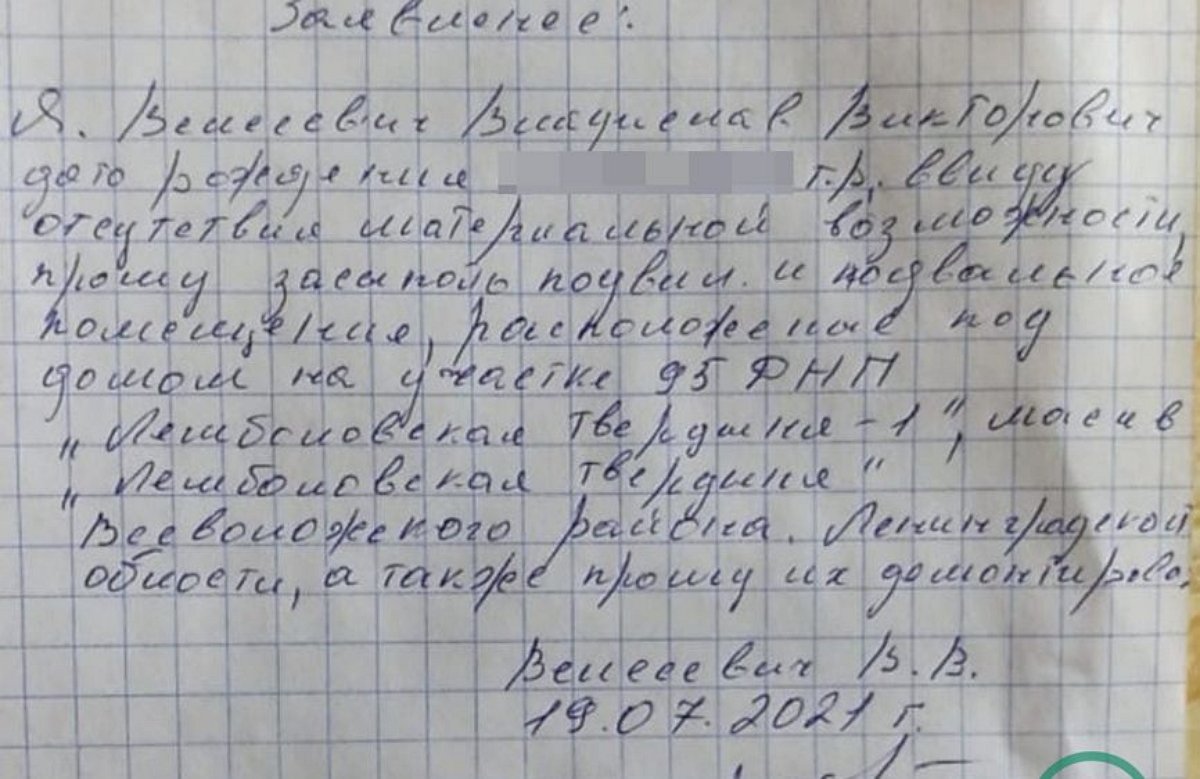 Заявление:
Я. Велесевич Вицадислав Викторович
дата рождения г.р. ввиду
отсутствия материальной возможности,
прошу засыпать подвал. и подвальное
помещения, расположеные под
домом на участке 95 ФНП
„Лемболовская твердыня-1", масив
„Лемболовская твердыня"
Всеволожского района. Ленинградской
области, а также прошу их демонтирова.
Велесевич В.В.
19.07.2021 г.